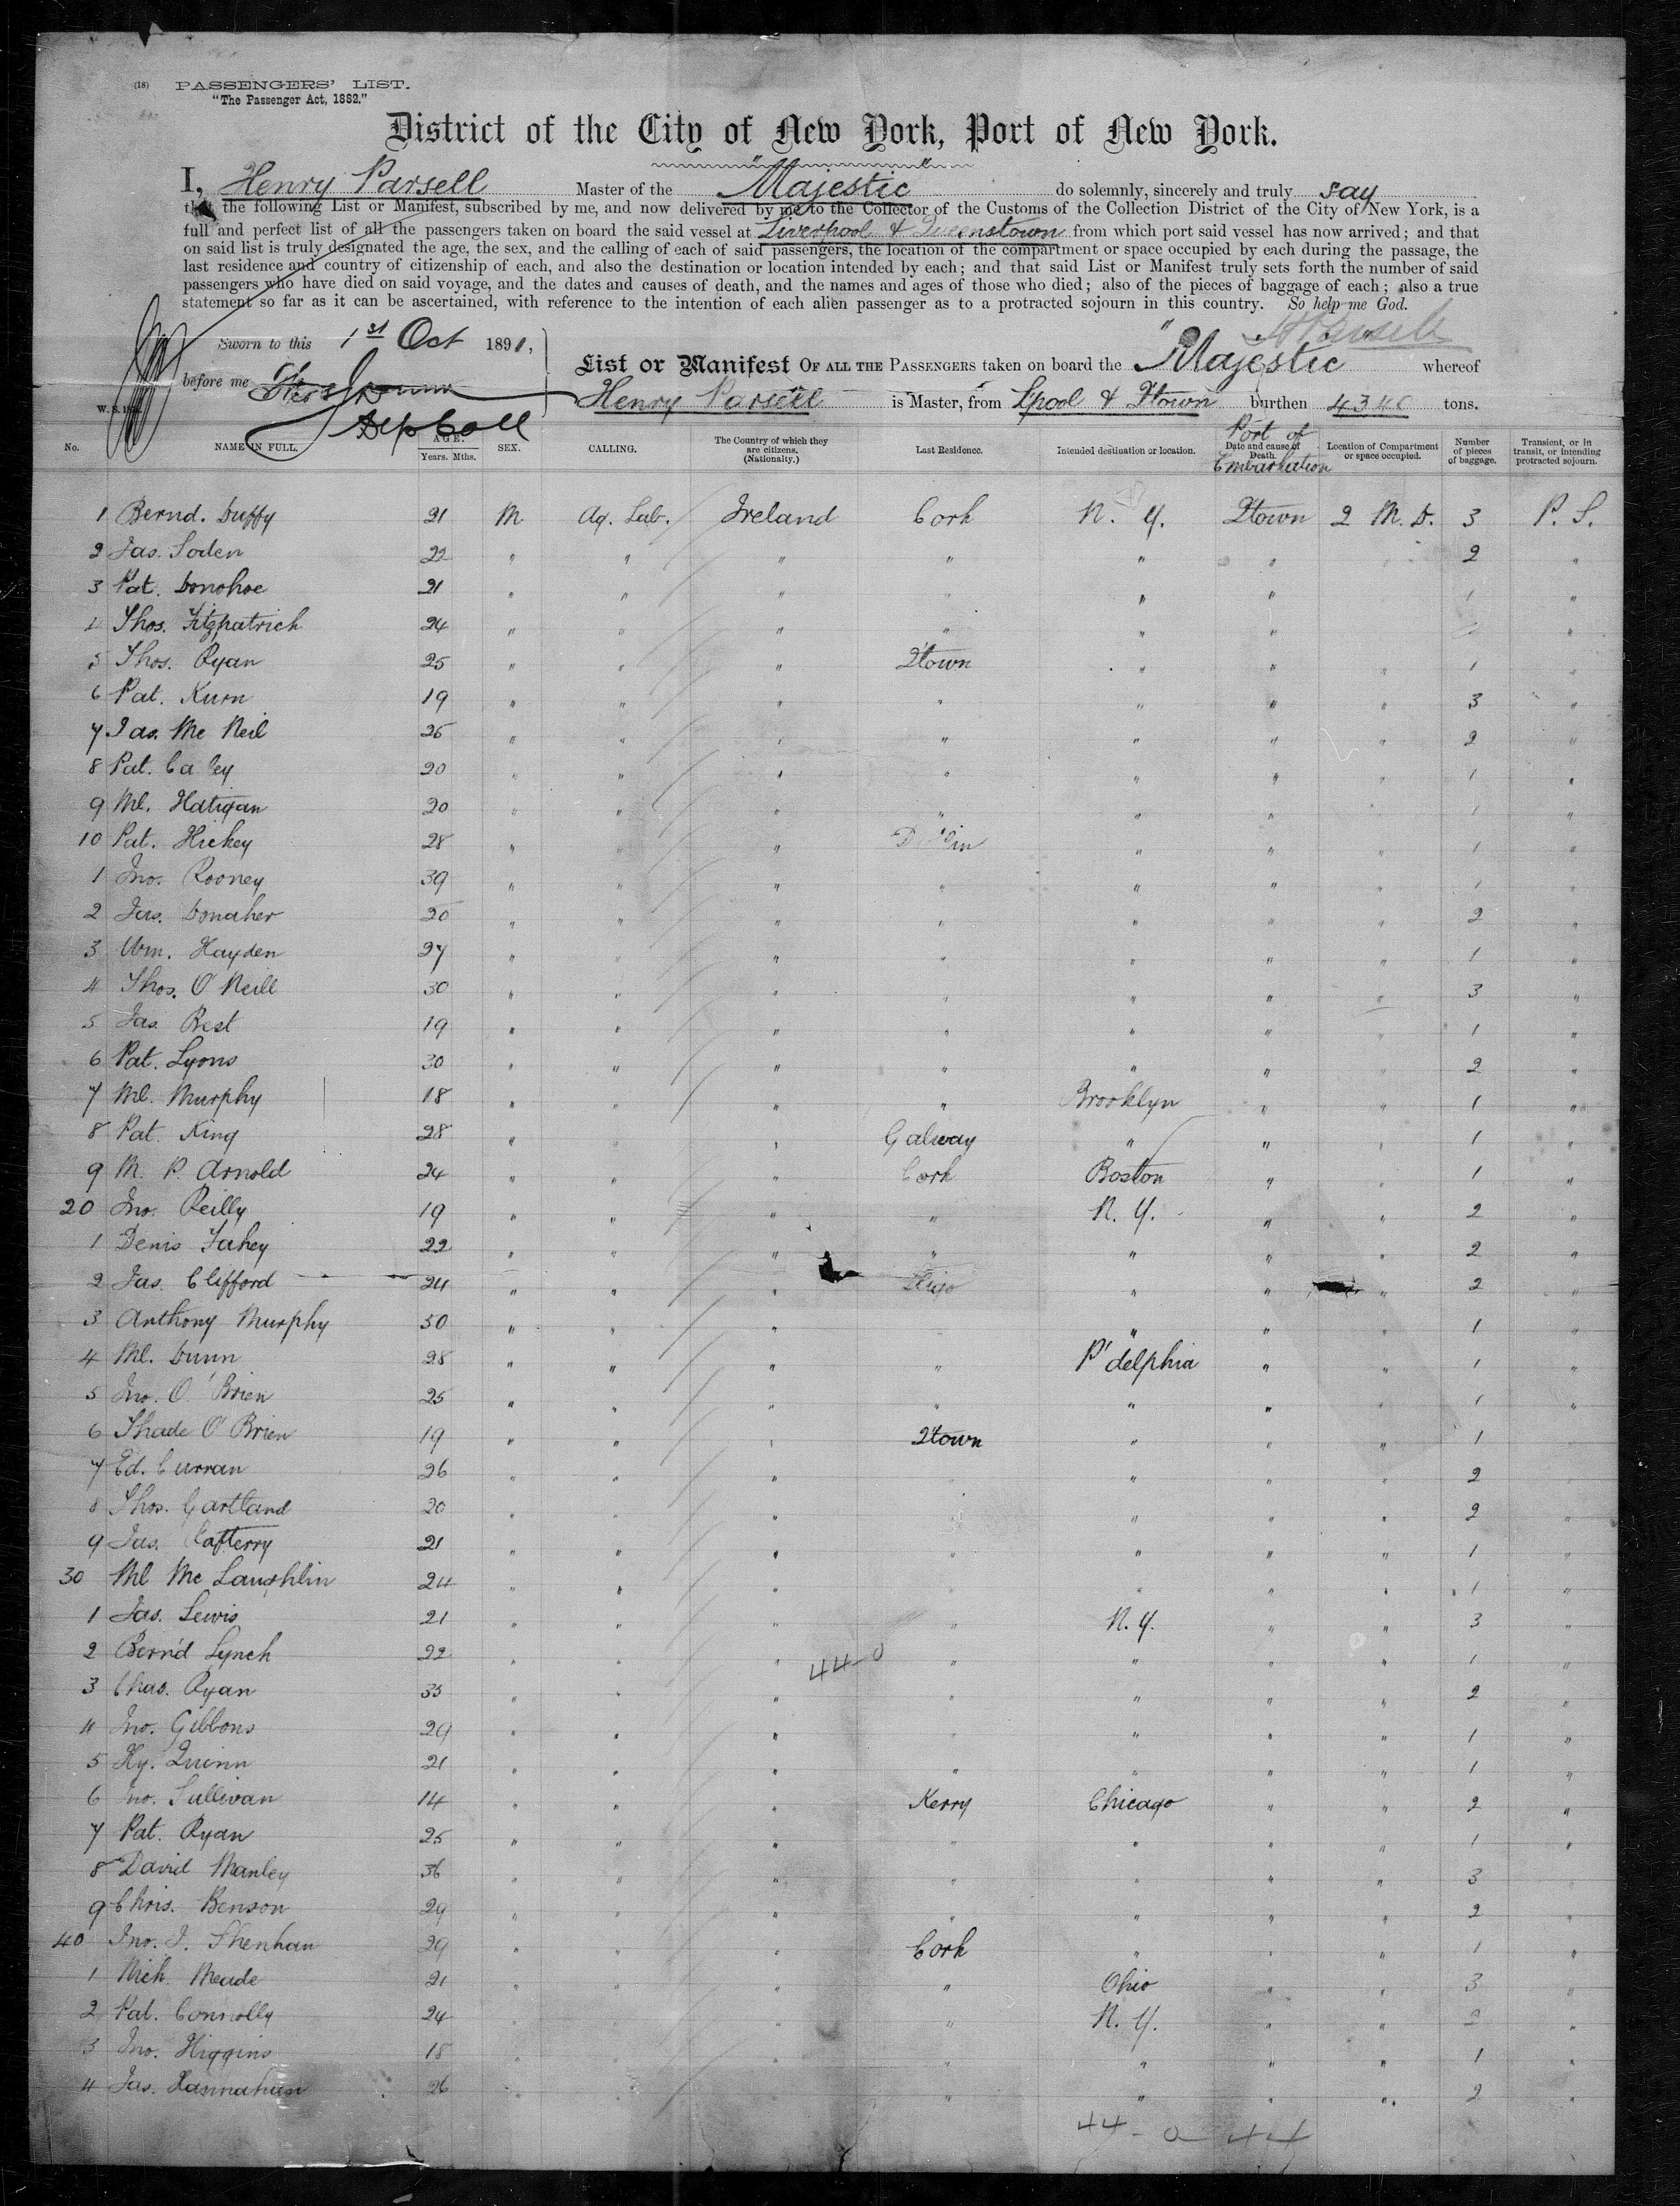 (18) PASSENGERS' LIST.
"The Passenger Act, 1882."
District of the City of New York, Port of New York.
I, Henry Parsell Master of the "Majestic" do solemnly, sincerely and truly say
that the following List or Manifest, subscribed by me, and now delivered by me to the Collector of the Customs of the Collection District of the City of New York, is a
full and perfect list of all the passengers taken on board the said vessel at Liverpool & Queenstown from which port said vessel has now arrived; and that
on said list is truly designated the age, the sex, and the calling of each of said passengers, the location of the compartment or space occupied by each during the passage, the
last residence and country of citizenship of each, and also the destination or location intended by each; and that said List or Manifest truly sets forth the number of said
passengers who have died on said voyage, and the dates and causes of death, and the names and ages of those who died; also of the pieces of baggage of each; also a true
statement so far as it can be ascertained, with reference to the intention of each alien passenger as to a protracted sojourn in this country. So help me God.
H Parsell
Sworn to this 1st Oct 1891,
before me
Dep Coll
List or Manifest OF ALL THE PASSENGERS taken on board the "Majestic whereof
Henry Parsell is Master, from Lpool & Qtown burthen 4340 tons.
No. NAME IN FULL. AGE. Years. Mths. SEX. CALLING. The Country of which they are citizens. (Nationality.) Last Residence. Intended destination or location. Port of Embarkation Date and cause of Death. Location of Compartment or space occupied. Number of pieces of baggage. Transient, or in transit, or intending protracted sojourn.
1 Bernd. Duffy 21 M Ag. Lab. Ireland Cork N. Y. Qtown 2 M. D. 3 P. S.
2 Jas. Soden 22 " " " " " " " 2 "
3 Pat. Donohoe 21 " " " " " " " 1 "
4 Thos. Fitzpatrick 24 " " " " " " "
5 Thos. Ryan 25 " " " Qtown " " " 1 "
6 Pat. Kurn 19 " " " " " " " 3 "
7 Jas. Mc Neil 26 " " " " " " " 2 "
8 Pat. 20 " " " " " " " 1 "
9 Ml. Hatigan 20 " " " " " " " 1 "
10 Pat. Hickey 28 " " " Dublin " " " 1 "
1 Jno. Rooney 39 " " " " " " " 1 "
2 Jas. Donaher 20 " " " " " " " 2 "
3 Wm. Hayden 27 " " " " " " " 1 "
4 Thos. O'Neill 30 " " " " " " " 3 "
5 Jas. Rest 19 " " " " " " " 1 "
6 Pat. Lyons 30 " " " " " " " 2 "
7 Ml. Murphy 18 " " " " Brooklyn " " 1 "
8 Pat. King 28 " " " Galway " " " 1 "
9 M. P. Arnold 24 " " " Cork Boston " " 1 "
20 Jno. Reilly 19 " " " " N. Y. " " 2 "
1 Denis Fahey 22 " " " " " " " 2 "
2 Jas. Clifford 24 " " " Sligo " " " 2 "
3 Anthony Murphy 50 " " " " " " 1 "
4 Ml. Dunn 28 " " " " P'delphia " " 1 "
5 Jno. O'Brien 25 " " " " " " " 1 "
6 Thade O'Brien 19 " " " Qtown " " " 1
7 Ed. Curran 26 " " " " " " 2
8 Thos. Gartland 20 " " " " " " " 2 "
9 Jas. Rafterry 21 " " " " " " " 1 "
30 Ml Mc Laughlin 24 " " " " " " " 1 "
1 Jas. Lewis 21 " " " " N. Y. " " 3 "
2 Bern'd Lynch 22 " " " 44-0 " " " " 1 "
3 Chas. Ryan 35 " " " " " " " 2 "
4 Jno. Gibbons 29 " " " " " " " 1 "
5 Hy. Quinn 21 " " " " " " " 1 "
6 Jno. Sullivan 14 " " " Kerry Chicago " " 2 "
7 Pat. Ryan 25 " " " " " " " 1 "
8 David Manley 36 " " " " " " " 3 "
9 Chris. Benson 29 " " " " " " " 2 "
40 Jno. J. Shenhan 29 " " " Cork " " " 1 "
1 Mich. Meade 21 " " " " Ohio " " 3 "
2 Pat. Connolly 24 " " " " N. Y. " " 2 "
3 Jno. Higgins 18 " " " " " " " 1 "
4 Jas. 26 " " " " " " " 2 "
44-0-44